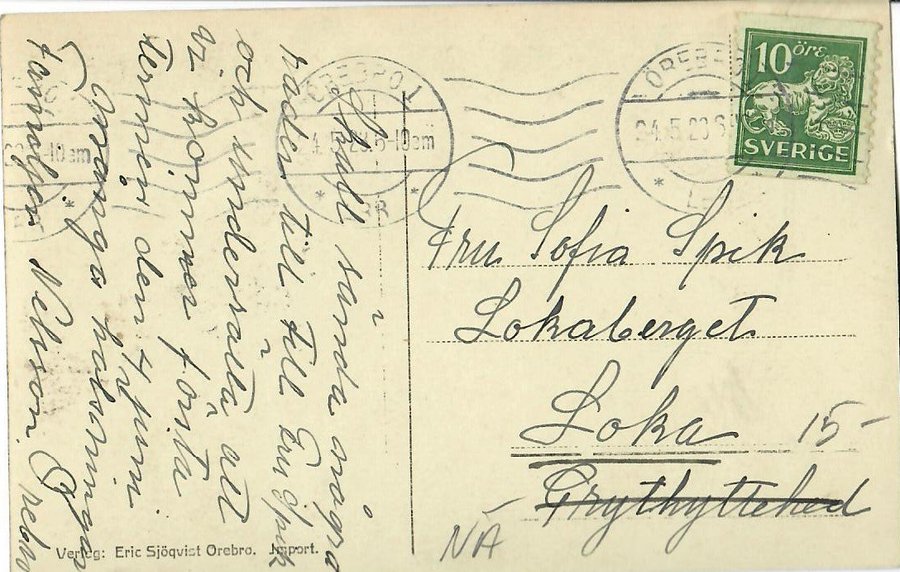 Skall sända några
rader till till Fru Spik
och undersätta att
vi kommer första
Terminen den 4 juni
Många hälsningar
familjen Nelsson Örebro
ÖREBRO 1
24.5.23.5-10em
ÖREBRO 1
24.5.23.5
10 öre
SVERIGE
Fru Sofia Spik
Lokaberget
Loka
15-
Grythyttehed
NÄ
Verlag: Eric Sjöqvist Orebro. Import.